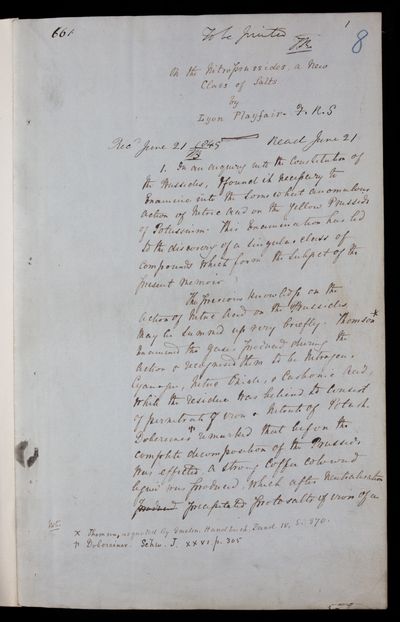 661
To be printed
1
8
On the Nitroprussides, a New
Class of Salts.
by
Lyon Playfair. F.R.S
Recd June 21 1849 Read June 21
1. In an inquiry into the Constitution of
the Prussides, I found it necessary to
Examine into the somewhat anomalous
action of Nitric Acid on the Yellow Prusside
of Potassium. This Examination has led
to the discovery of a singular class of
Compounds which form the Subject of the
present Memoir.
The previous Knowledge on the
action of Nitric Acid on the Prussides
may be summed up very briefly. Thomson x
Examined the gases produced during the
action & recognised them to be Nitrogen,
Cyanogen, Nitric Oxide, & Carbonic Acid,
while the residue was believed to consist
of pernitrate of iron & Nitrate of Potash.
Dobereiner remarked that before the
complete decomposition of the Prusside
was effected, a strong Coffee coloured
liquid was produced, which after Neutralisation
precipitated proto salts of iron of a
x Thomson, as quoted by Gmelin, Handbuch, Band IV. S. 370.
Dobereiner. Schw. J. XXVI p. 305